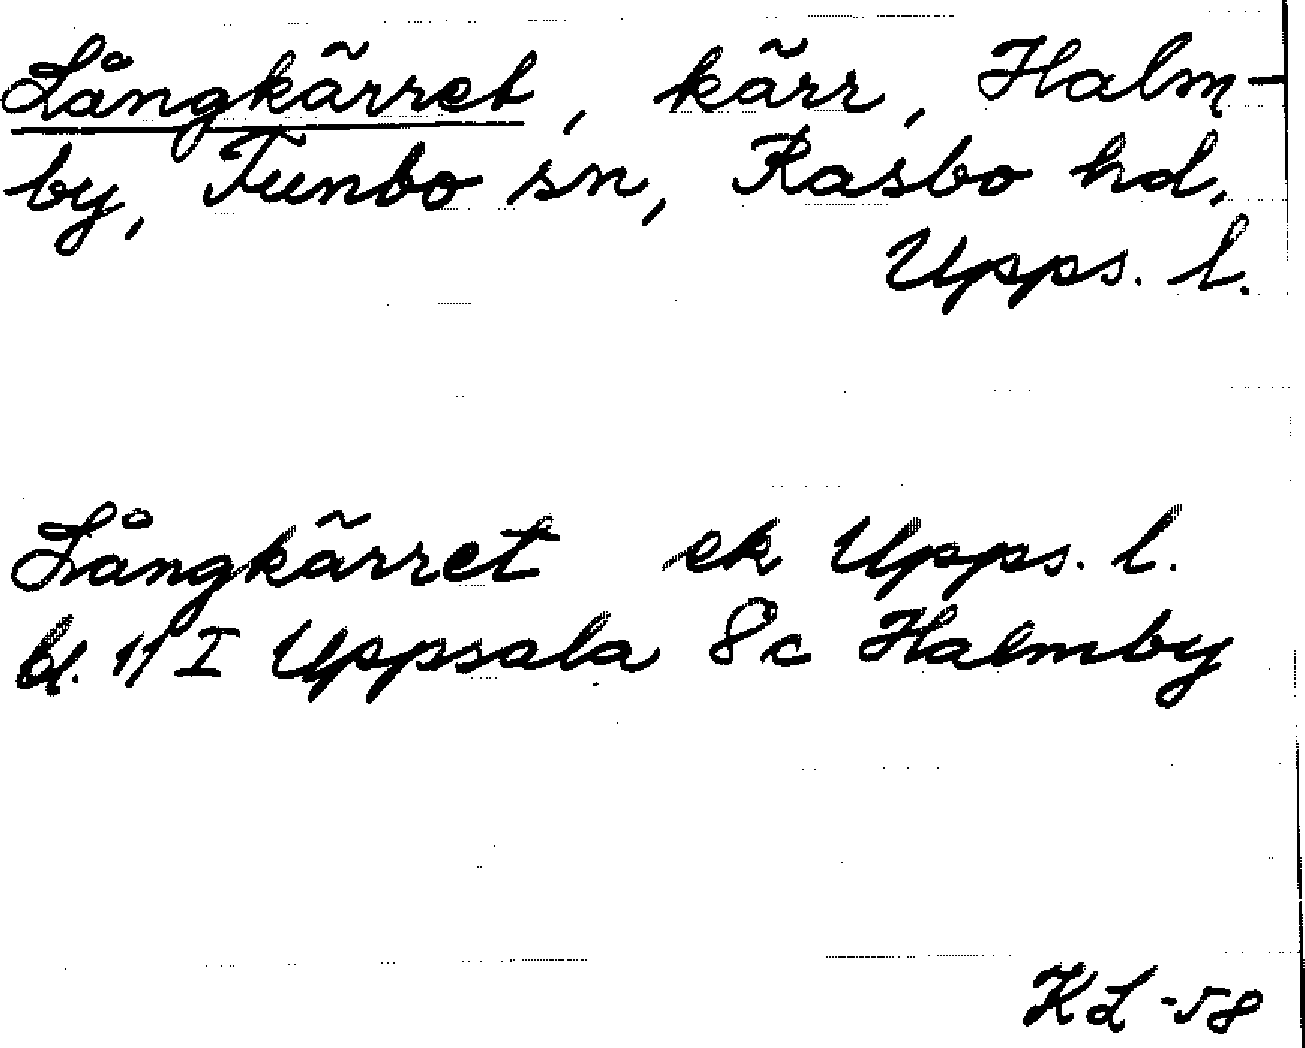 Långkärret, kärr, Halm-
by, Funbo sn, Rasbo hd,
Upps. l.
Långkärret ek Upps. l.
bl. 11 I Uppsala 8c Halmby
KL -58